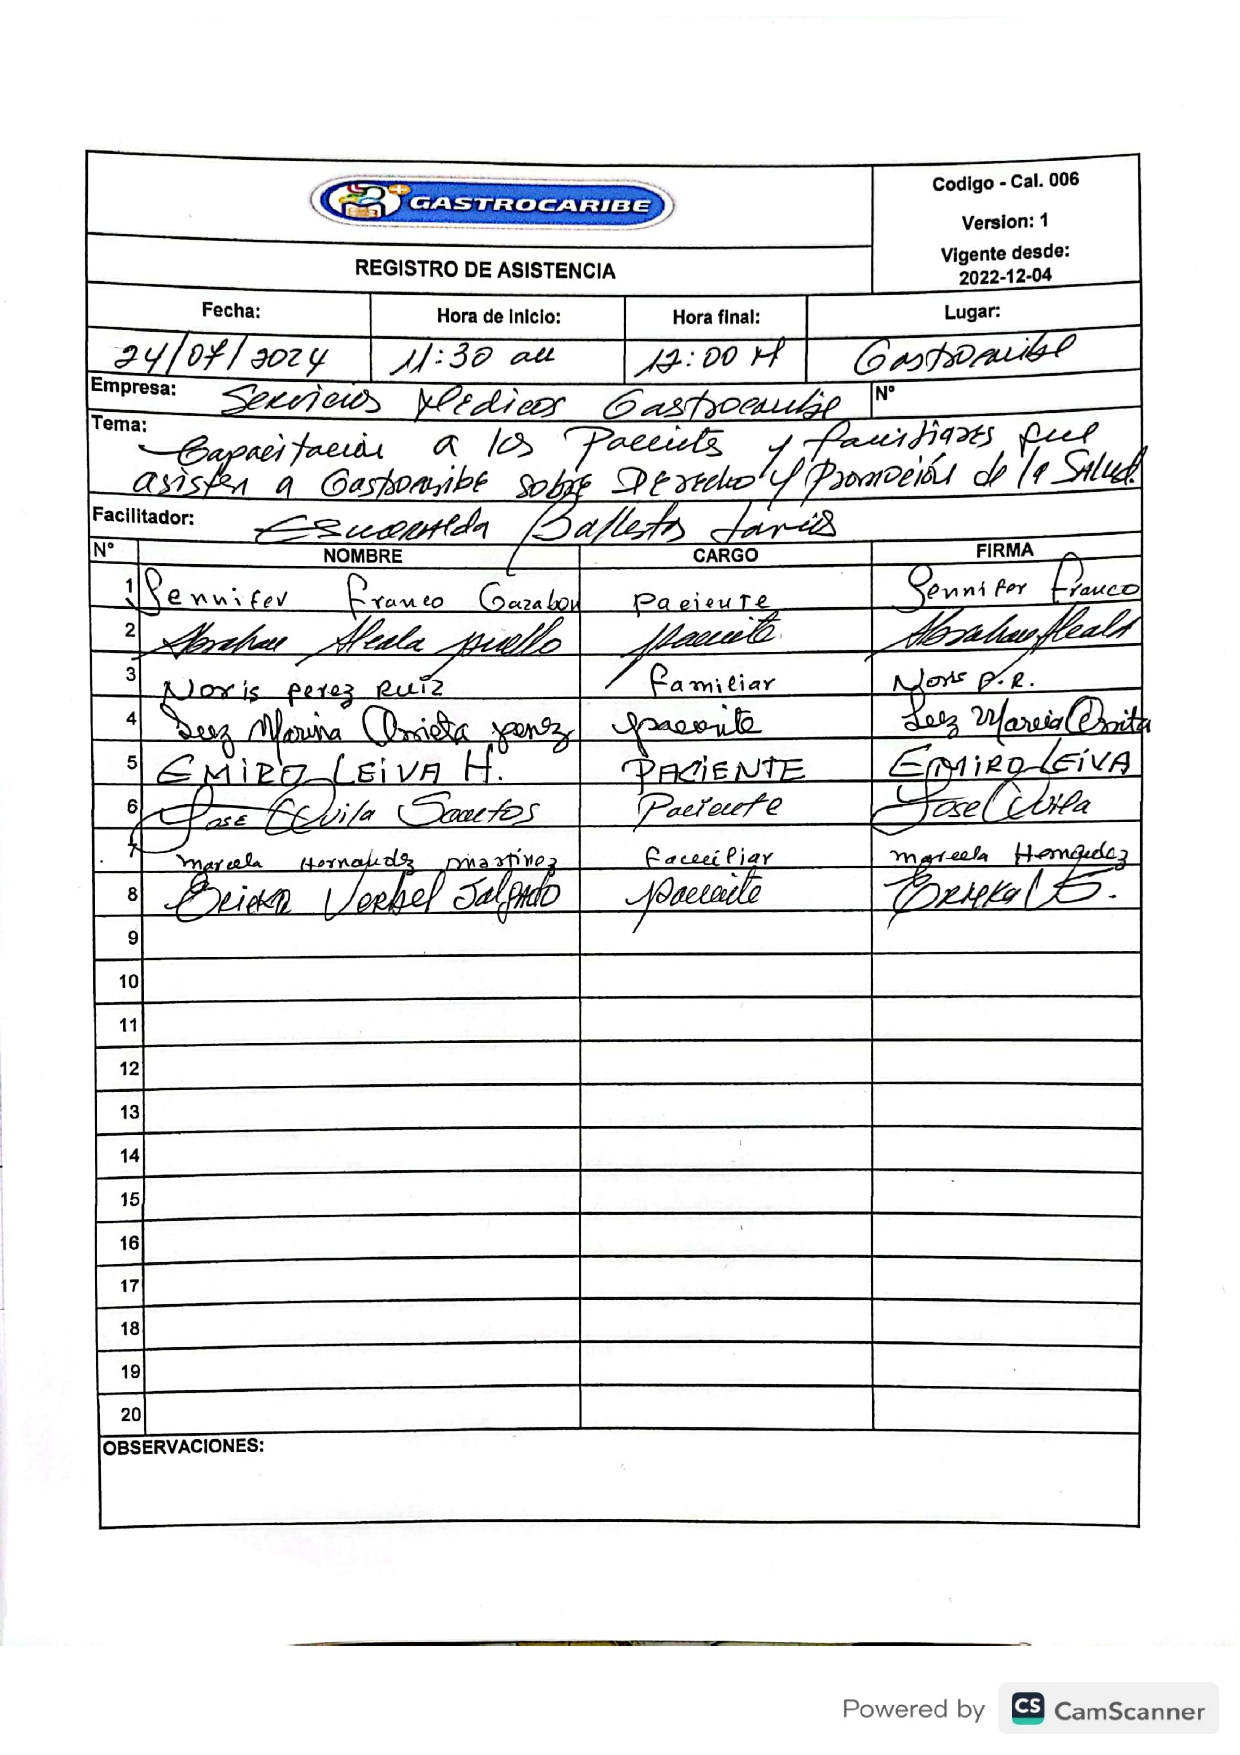 GASTROCARIBE
Codigo - Cal. 006
Version: 1
Vigente desde:
2022-12-04
REGISTRO DE ASISTENCIA
Fecha: Hora de inicio: Hora final: Lugar:
24/07/2024 11:30 am 12:00 M Gastrocaribe
Empresa: Servicios Medicos Gastrocaribe N°
Tema: Capacitación a los Pacientes y familiares que
asisten a Gastrocaribe sobre Derecho y Promoción de la Salud.
Facilitador: Esmeralda Ballestas
N° NOMBRE CARGO FIRMA
1 Jennifer Franco Gazabon paciente Jennifer Franco
2 Abraham Alcala puello paciente Abraham Alcala
3 Noris perez Ruiz familiar Noris P.R.
4 Luz Marina Arrieta perez paciente Luz Maria Arrita
5 EMIRO LEIVA H. PACIENTE EMIRO LEIVA
6 Jose Avila Santos Paciente Jose Avila
7 marcela Hernandez martinez familiar marcela Hernandez
8 Ericka Verbel Salgado paciente Ericka
9
10
11
12
13
14
15
16
17
18
19
20
OBSERVACIONES:
Powered by CS CamScanner